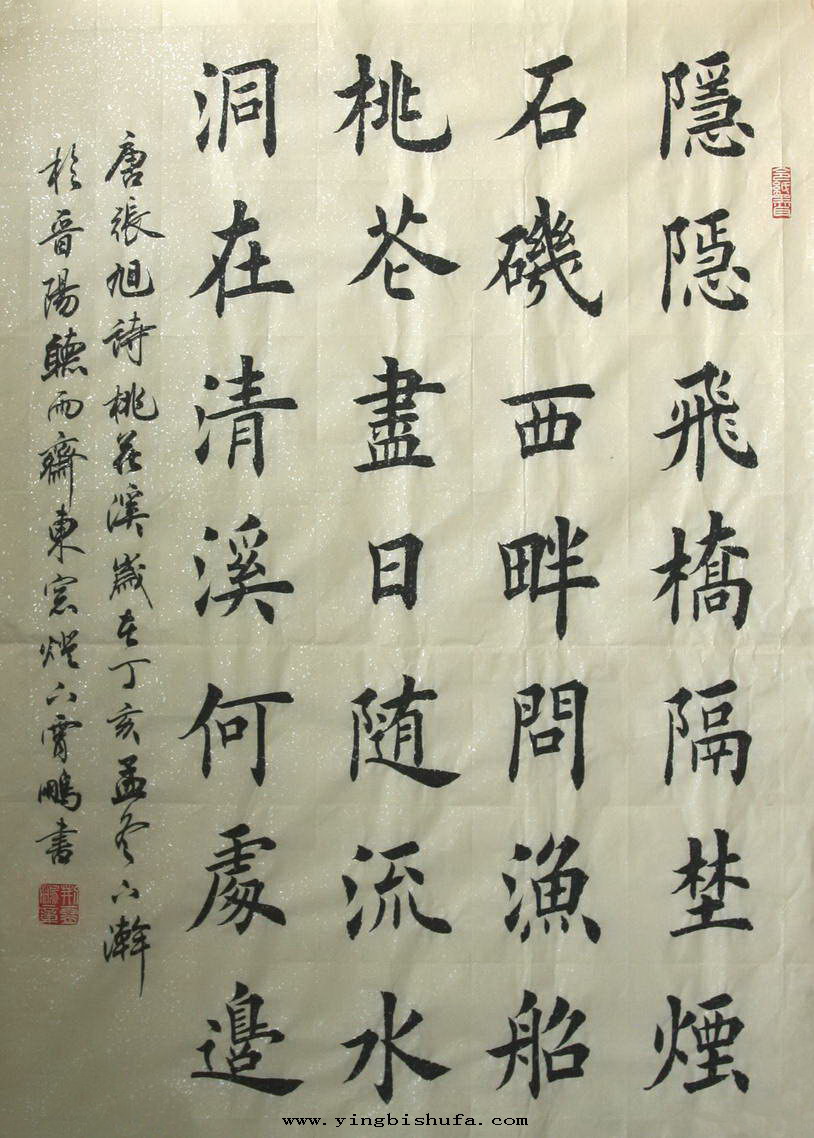 隱隱飛橋隔埜煙
石磯西畔問漁船
桃花盡日随流水
洞在清溪何處邊
唐張旭詩桃花溪歲在丁亥孟冬下澣
於晉陽聽雨齋東窓燈下霄鵬書
www.yingbishufa.com